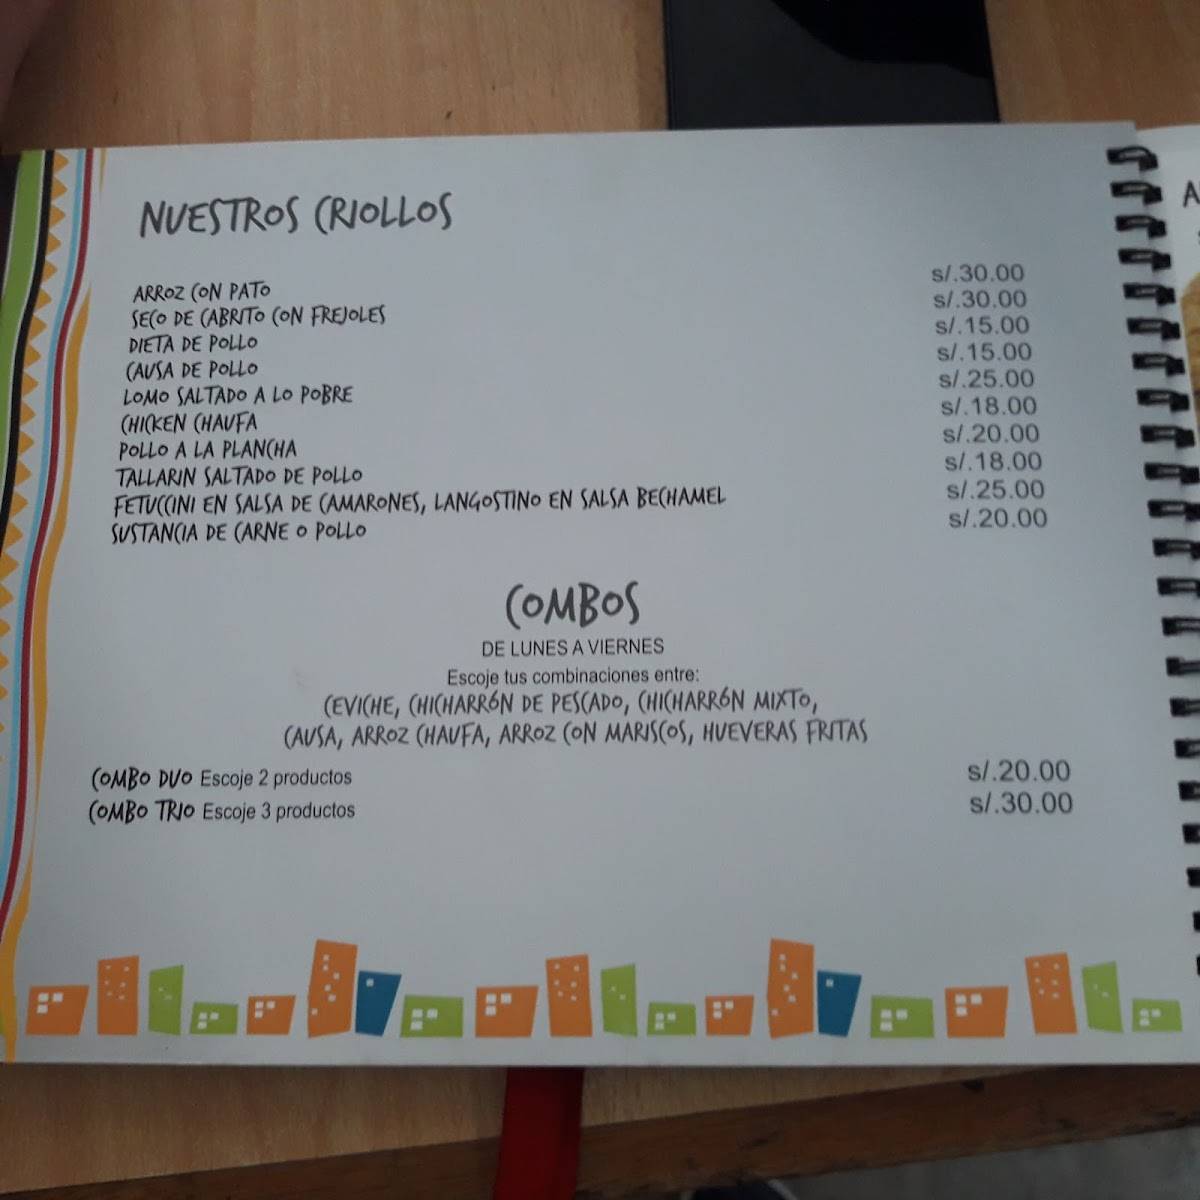 NUESTROS CRIOLLOS
ARROZ CON PATO s/.30.00
SECO DE CABRITO CON FREJOLES s/.30.00
DIETA DE POLLO s/.15.00
CAUSA DE POLLO s/.15.00
LOMO SALTADO A LO POBRE s/.25.00
CHICKEN CHAUFA s/.18.00
POLLO A LA PLANCHA s/.20.00
TALLARIN SALTADO DE POLLO s/.18.00
FETUCCINI EN SALSA DE CAMARONES, LANGOSTINO EN SALSA BECHAMEL s/.25.00
SUSTANCIA DE CARNE O POLLO s/.20.00
COMBOS
DE LUNES A VIERNES
Escoje tus combinaciones entre:
CEVICHE, CHICHARRÓN DE PESCADO, CHICHARRÓN MIXTO,
CAUSA, ARROZ CHAUFA, ARROZ CON MARISCOS, HUEVERAS FRITAS
COMBO DUO Escoje 2 productos s/.20.00
COMBO TRIO Escoje 3 productos s/.30.00